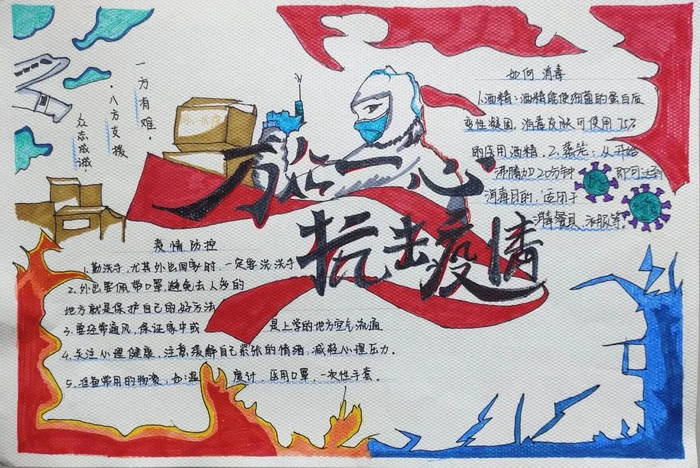 一方有难，
八方支援
众志成诚
万众一心
抗击疫情
如何消毒
1.酒精：酒精能使细菌的蛋白质
变性凝固，消毒皮肤可使用75%
的医用酒精，2.蒸笼：从开始
沸腾加20分钟 即可达到
消毒目的，适用于
消毒餐具，衣服等。
疫情防控
1.勤洗手，尤其外出回家时，一定要洗洗手
2.外出要佩带口罩，避免去人多的
地方就是保护自己的好方法
3.要经常通风，保证家中或 是上学的地方空气流通
4.关注心理健康，注意缓解自己紧张的情绪，减轻心理压力.
5.准备常用的物资，如：温 度计，医用口罩，一次性手套.